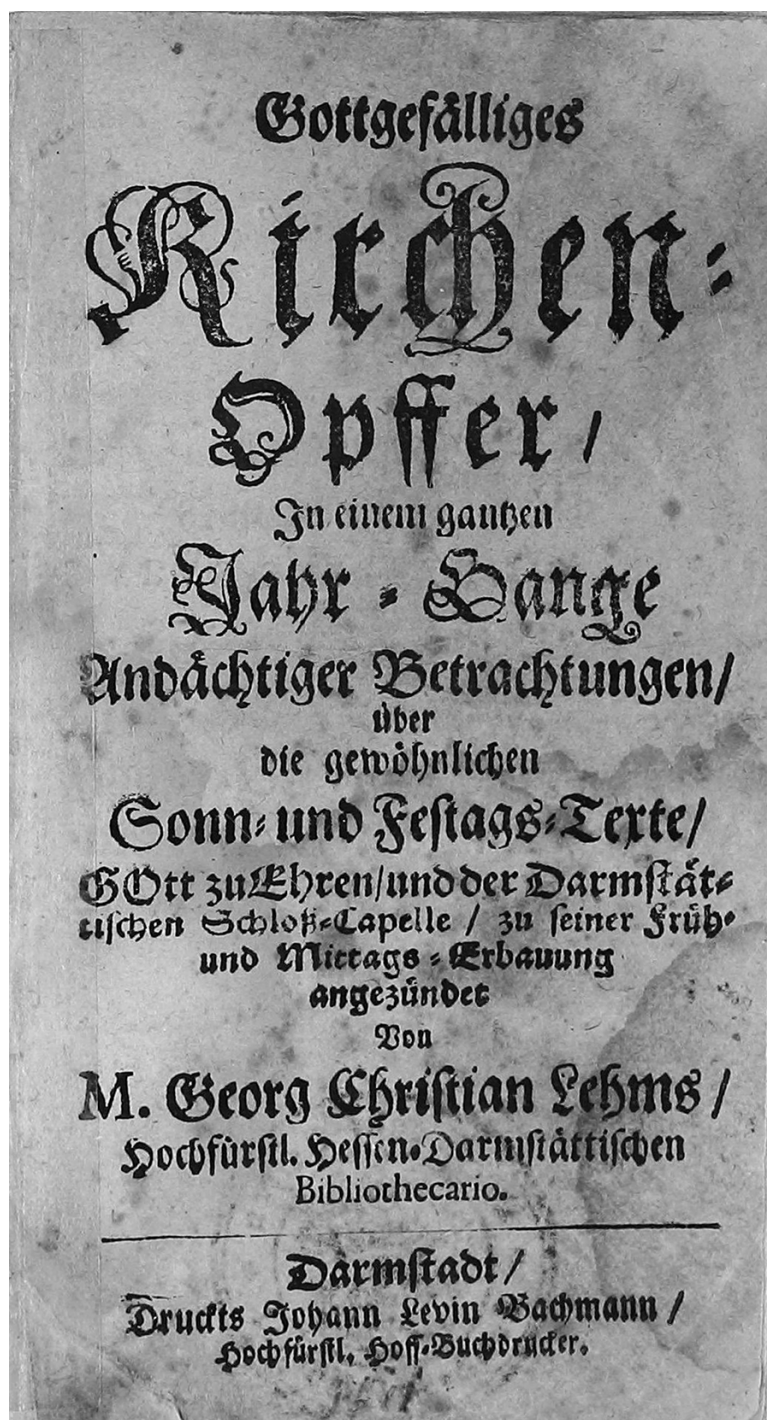 Gottgefälliges
Kirchen-
Opffer/
In einem gantzen
Jahr-Gange
Andächtiger Betrachtungen/
über
die gewöhnlichen
Sonn- und Festags-Texte/
GOtt zu Ehren/ und der Darmstät-
tischen Schloß-Capelle / zu seiner Früh-
und Mittags-Erbauung
angezündet
Von
M. Georg Christian Lehms /
Hochfürstl. Hessen-Darmstättischen
Bibliothecario.
Darmstadt/
Druckts Johann Levin Bachmann /
Hochfürstl. Hoff-Buchdrucker.